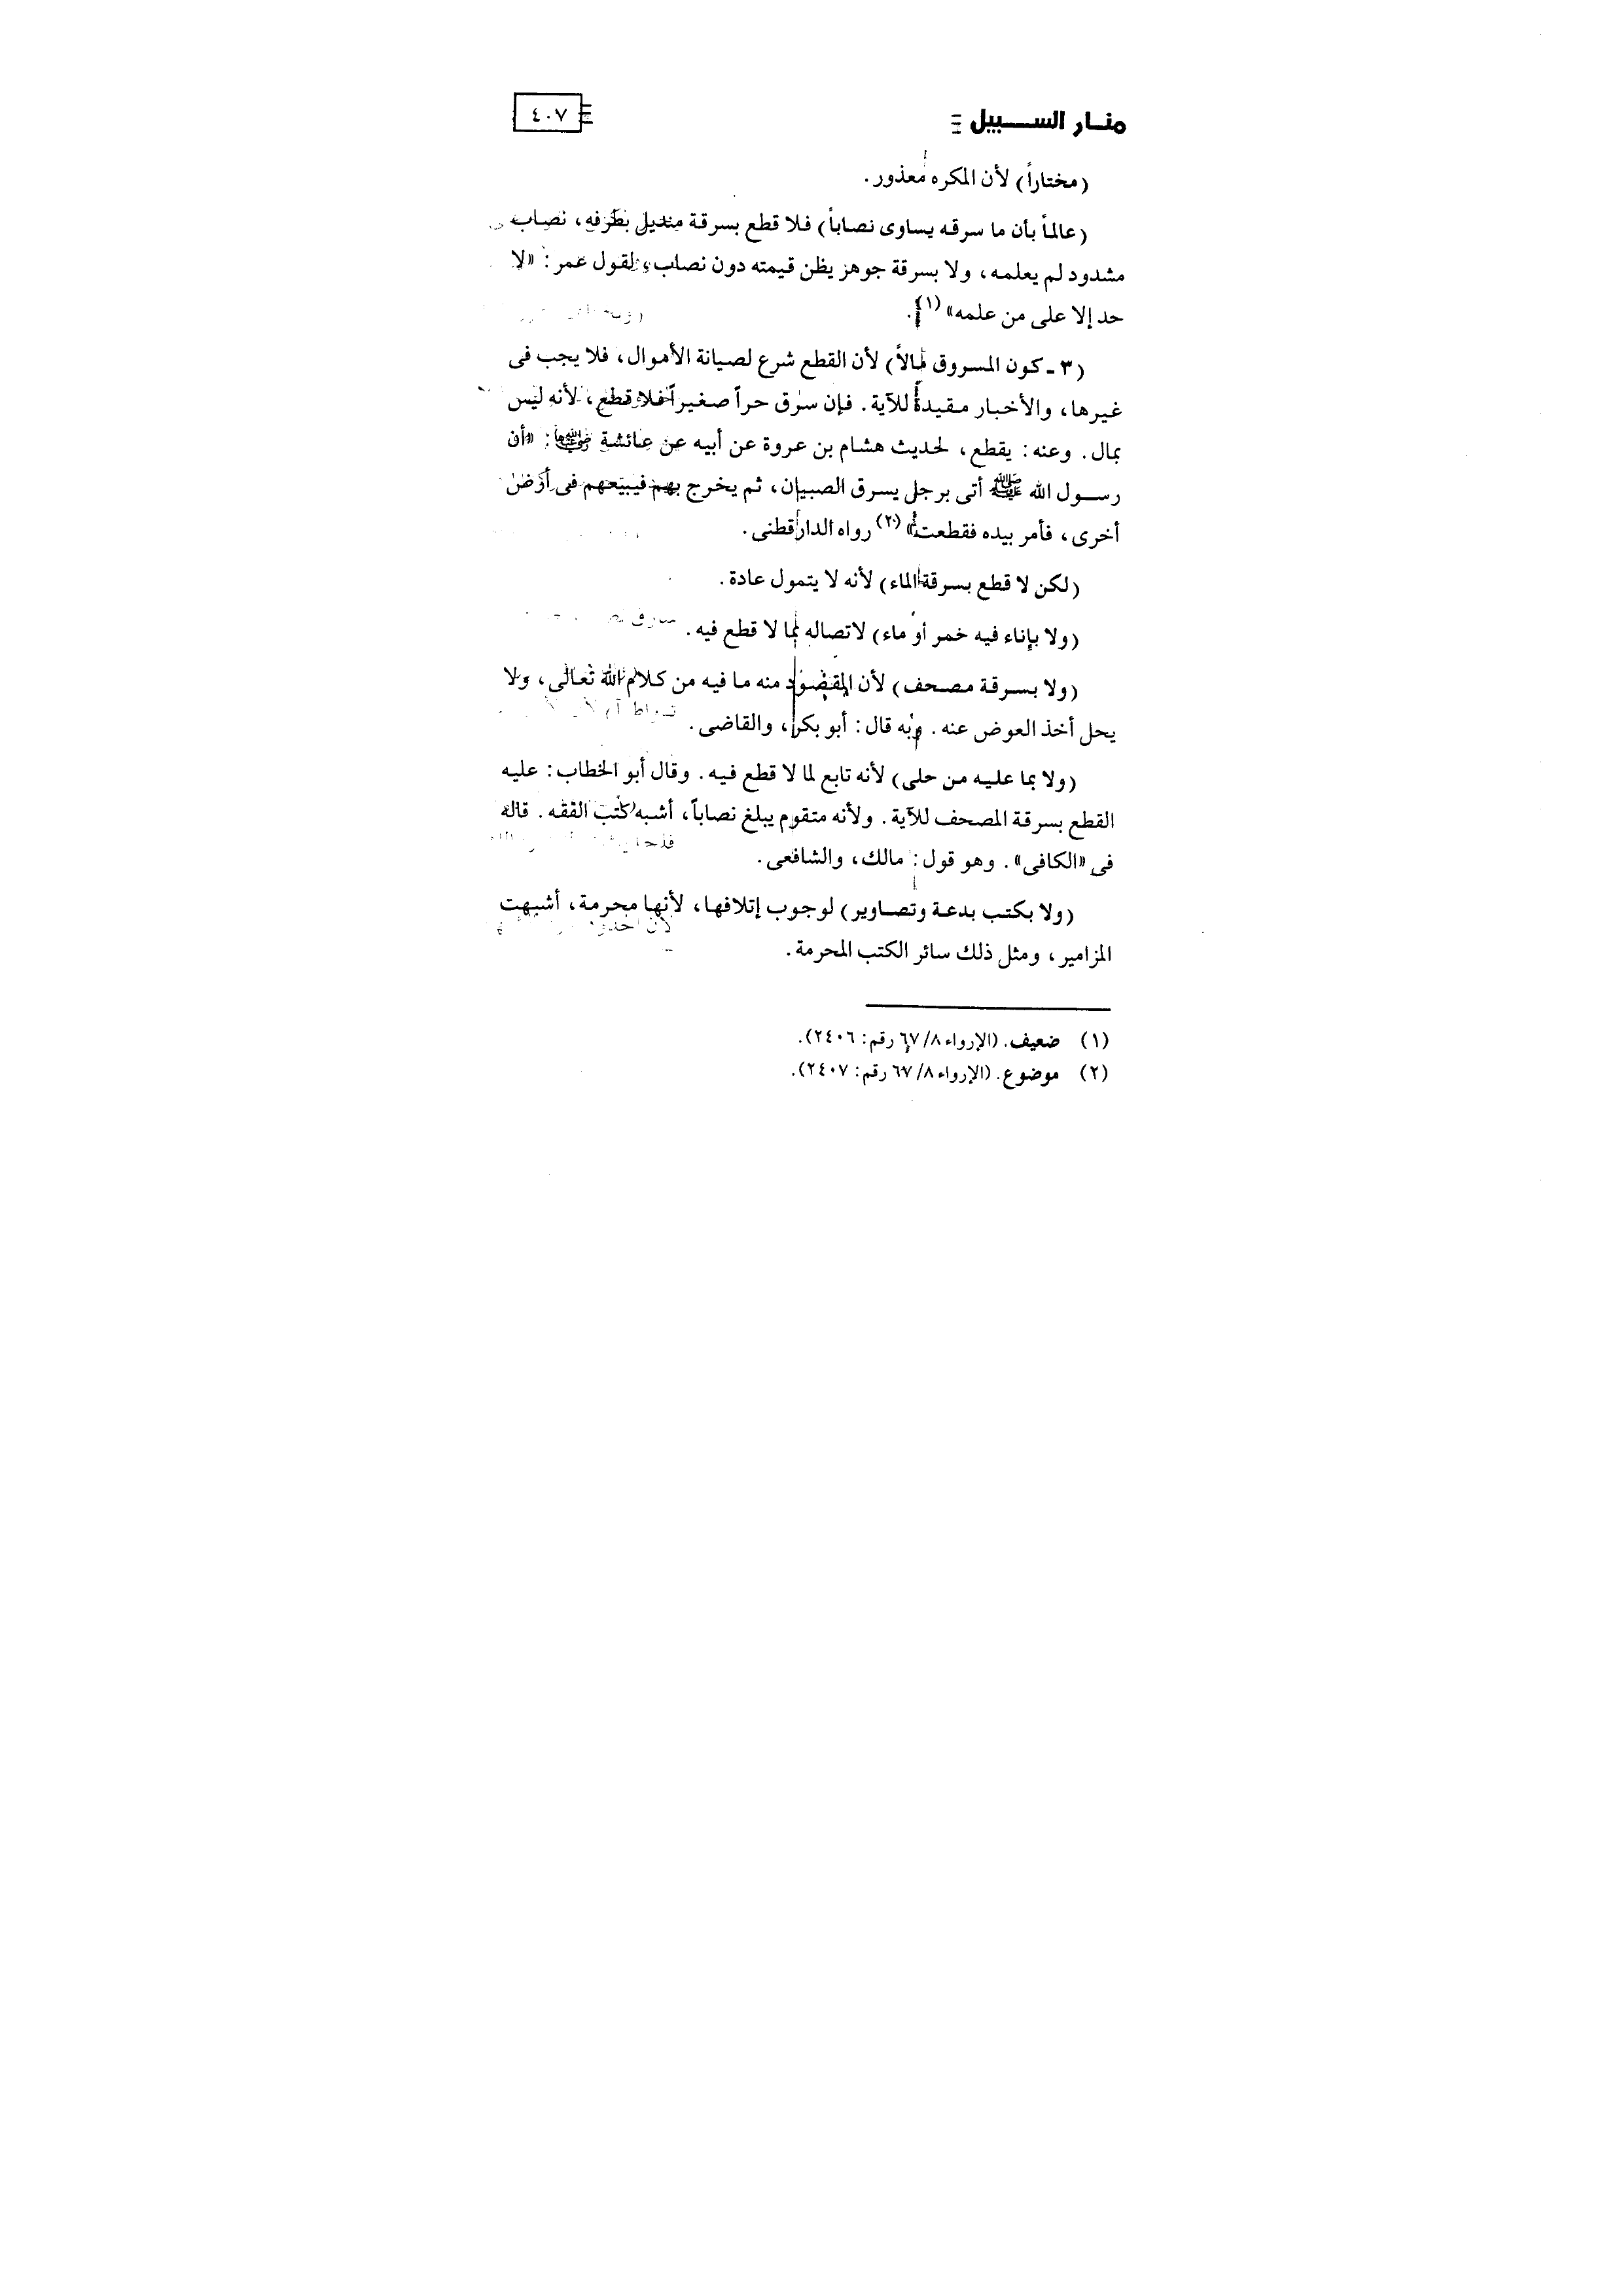 منار السبيل ٤٠٧
(مختاراً) لأن المكره معذور.
(عالماً بأن ما سرقه يساوى نصاباً) فلا قطع بسرقة منديل بطرفه، نصاب
مشدود لم يعلمه، ولا بسرقة جوهر يظن قيمته دون نصاب، لقول عمر: «لا
حد إلا على من علمه» (١).
(٣ ـ كون المسروق مالاً) لأن القطع شرع لصيانة الأموال، فلا يجب فى
غيرها، والأخبار مقيدة للآية. فإن سرق حراً صغيراً فلا قطع، لأنه ليس
بمال. وعنه: يقطع، لحديث هشام بن عروة عن أبيه عن عائشة رضي الله عنها: «أن
رسول الله ﷺ أتى برجل يسرق الصبيان، ثم يخرج بهم فيبيعهم فى أرض
أخرى، فأمر بيده فقطعت» (٢) رواه الدارقطنى.
(لكن لا قطع بسرقة الماء) لأنه لا يتمول عادة.
(ولا بإناء فيه خمر أو ماء) لاتصاله بما لا قطع فيه.
(ولا بسرقة مصحف) لأن المقصود منه ما فيه من كلام الله تعالى، ولا
يحل أخذ العوض عنه. وبه قال: أبو بكر، والقاضى.
(ولا بما عليه من حلى) لأنه تابع لما لا قطع فيه. وقال أبو الخطاب: عليه
القطع بسرقة المصحف للآية. ولأنه متقوم يبلغ نصاباً، أشبه كتب الفقه. قاله
فى «الكافى». وهو قول: مالك، والشافعى.
(ولا بكتب بدعة وتصاوير) لوجوب إتلافها، لأنها محرمة، أشبهت
المزامير، ومثل ذلك سائر الكتب المحرمة.
(١) ضعيف. (الإرواء ٨/ ٦٧ رقم: ٢٤٠٦).
(٢) موضوع. (الإرواء ٨/ ٦٧ رقم: ٢٤٠٧).